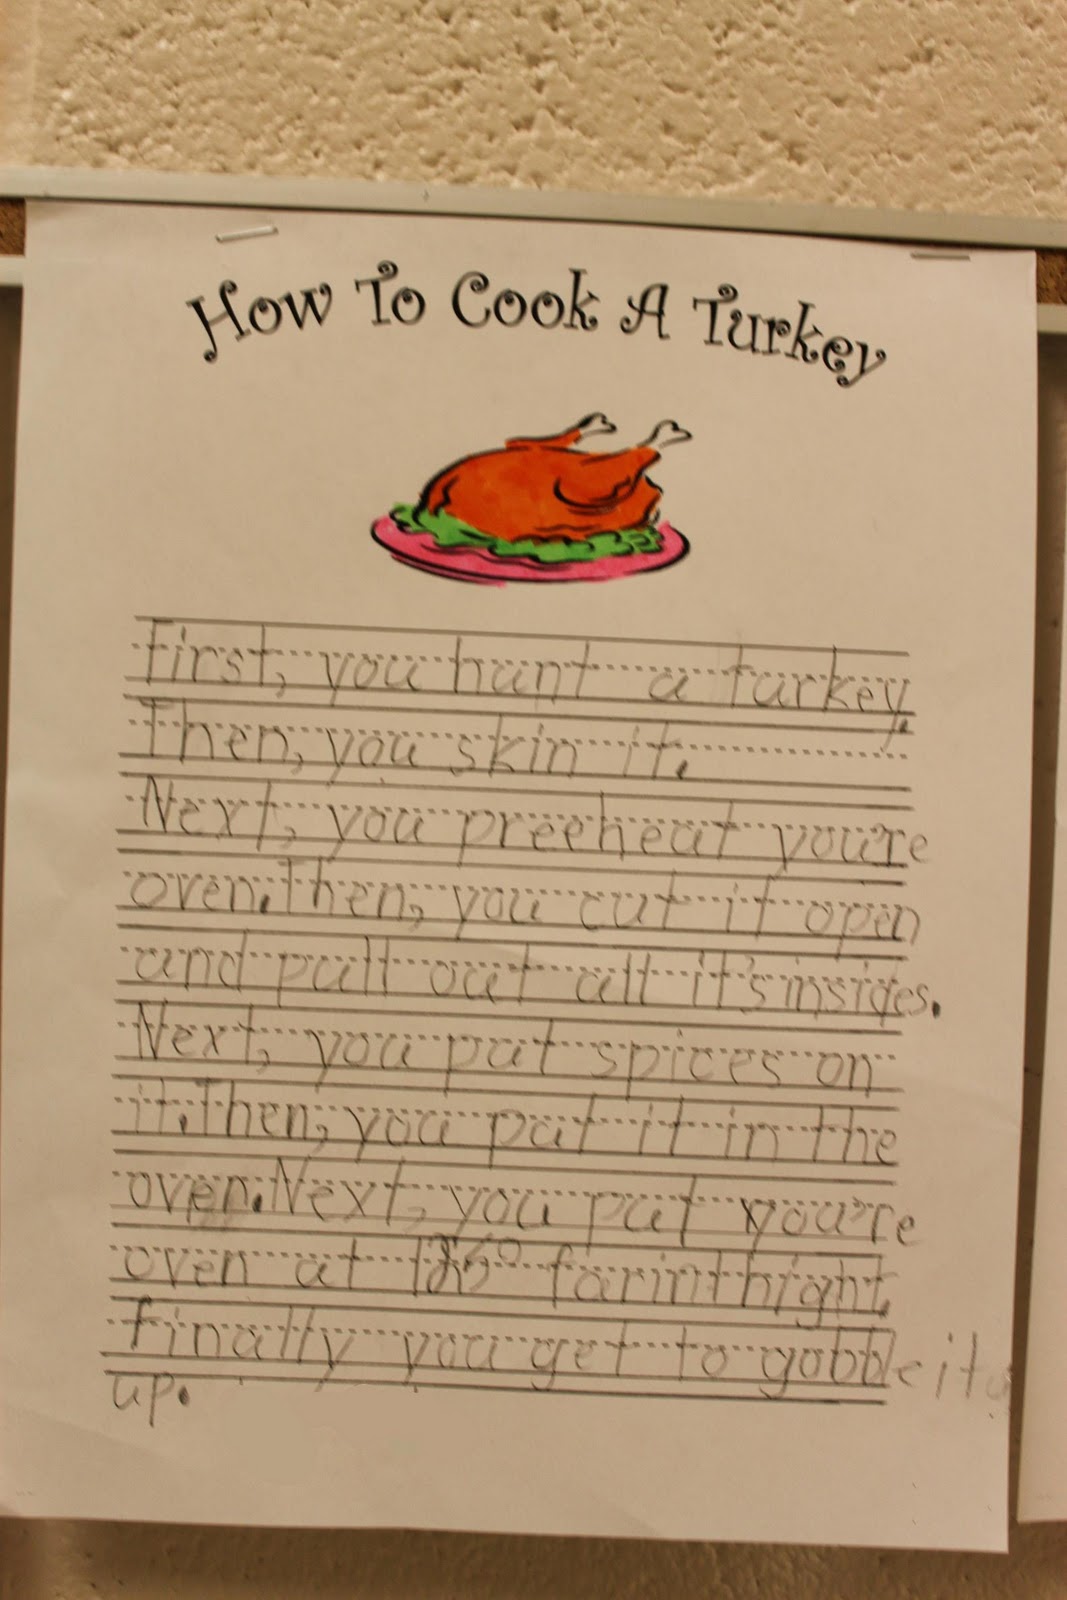 How To Cook A Turkey
First, you hunt a turkey.
Then, you skin it.
Next, you preeheat you're
oven. Then, you cut it open
and pull out all it's insides.
Next, you put spices on
it. Then, you put it in the
oven. Next, you put you're
oven at farinthight.
Finally you get to gobble it
up.